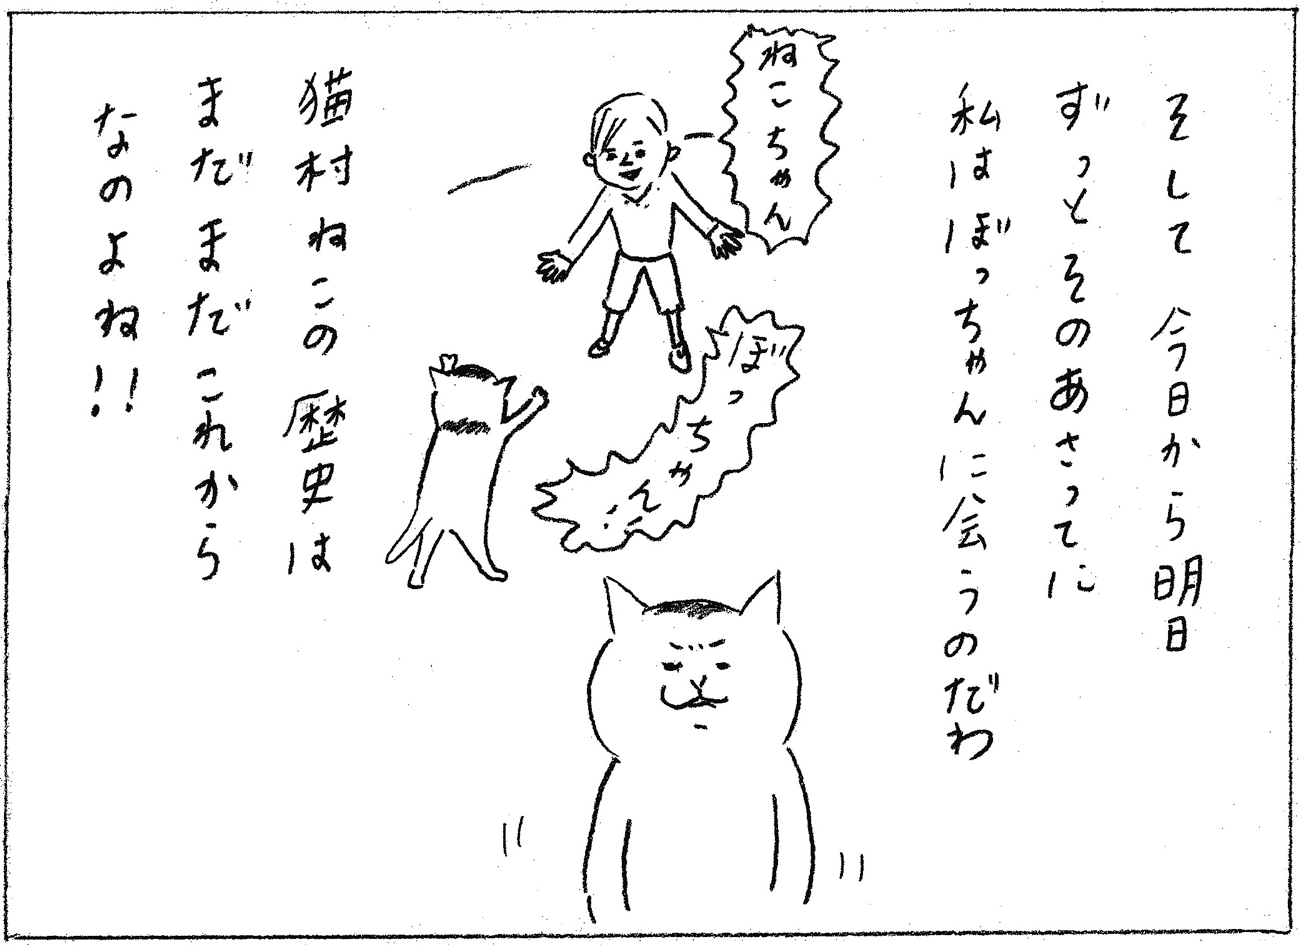 そして 今日から明日
ずっとそのあさってに
私はぼっちゃんに会うのだわ
ねこちゃん
ぼっちゃん…
猫村ねこの歴史は
まだまだこれから
なのよね!!